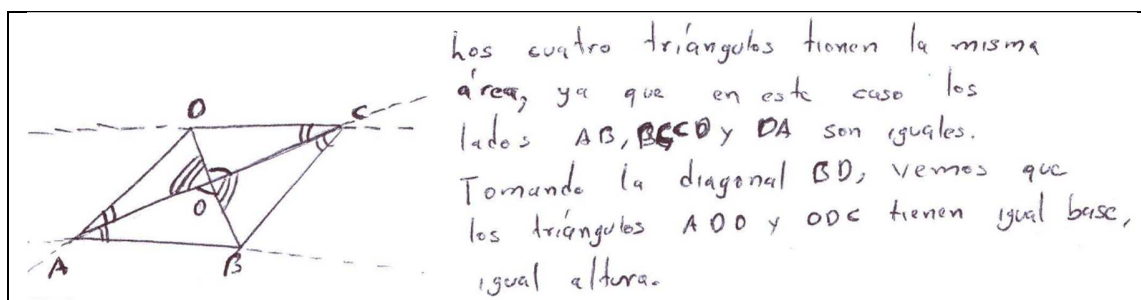 D C
O
A B
Los cuatro triángulos tienen la misma
área, ya que en este caso los
lados AB, BC, CD y DA son iguales.
Tomando la diagonal BD, vemos que
los triángulos AOD y ODC tienen igual base,
igual altura.